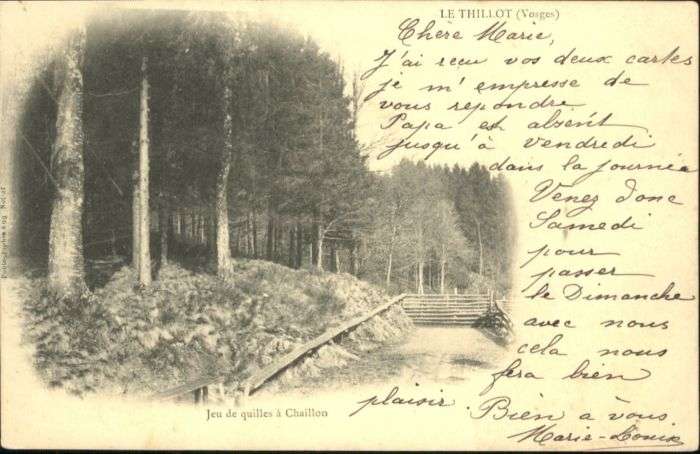 LE THILLOT (Vosges)
Chère Marie,
J'ai reçu vos deux cartes
je m'empresse de
vous repondre
Papa est absent
jusqu'à vendredi
dans la journée
Venez donc
Samedi
pour
passer
le Dimanche
avec nous
cela nous
fera bien
plaisir. Bien à vous
Marie-Louise
Jeu de quilles à Chaillon